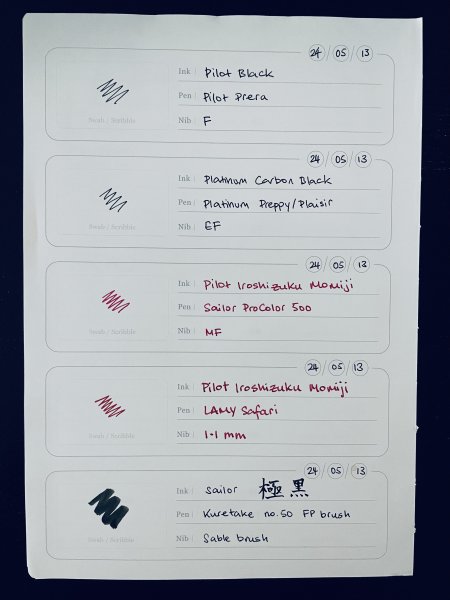 24 05 13
Ink Pilot Black
Pen Pilot Prera
Nib F
Swab / Scribble
24 05 13
Ink Platinum Carbon Black
Pen Platinum Preppy/Plaisir
Nib EF
Swab / Scribble
24 05 13
Ink Pilot Iroshizuku Momiji
Pen Sailor ProColor 500
Nib MF
Swab / Scribble
24 05 13
Ink Pilot Iroshizuku Momiji
Pen LAMY Safari
Nib 1.1 mm
Swab / Scribble
24 05 13
Ink Sailor 極黒
Pen Kuretake no.50 FP brush
Nib Sable brush
Swab / Scribble